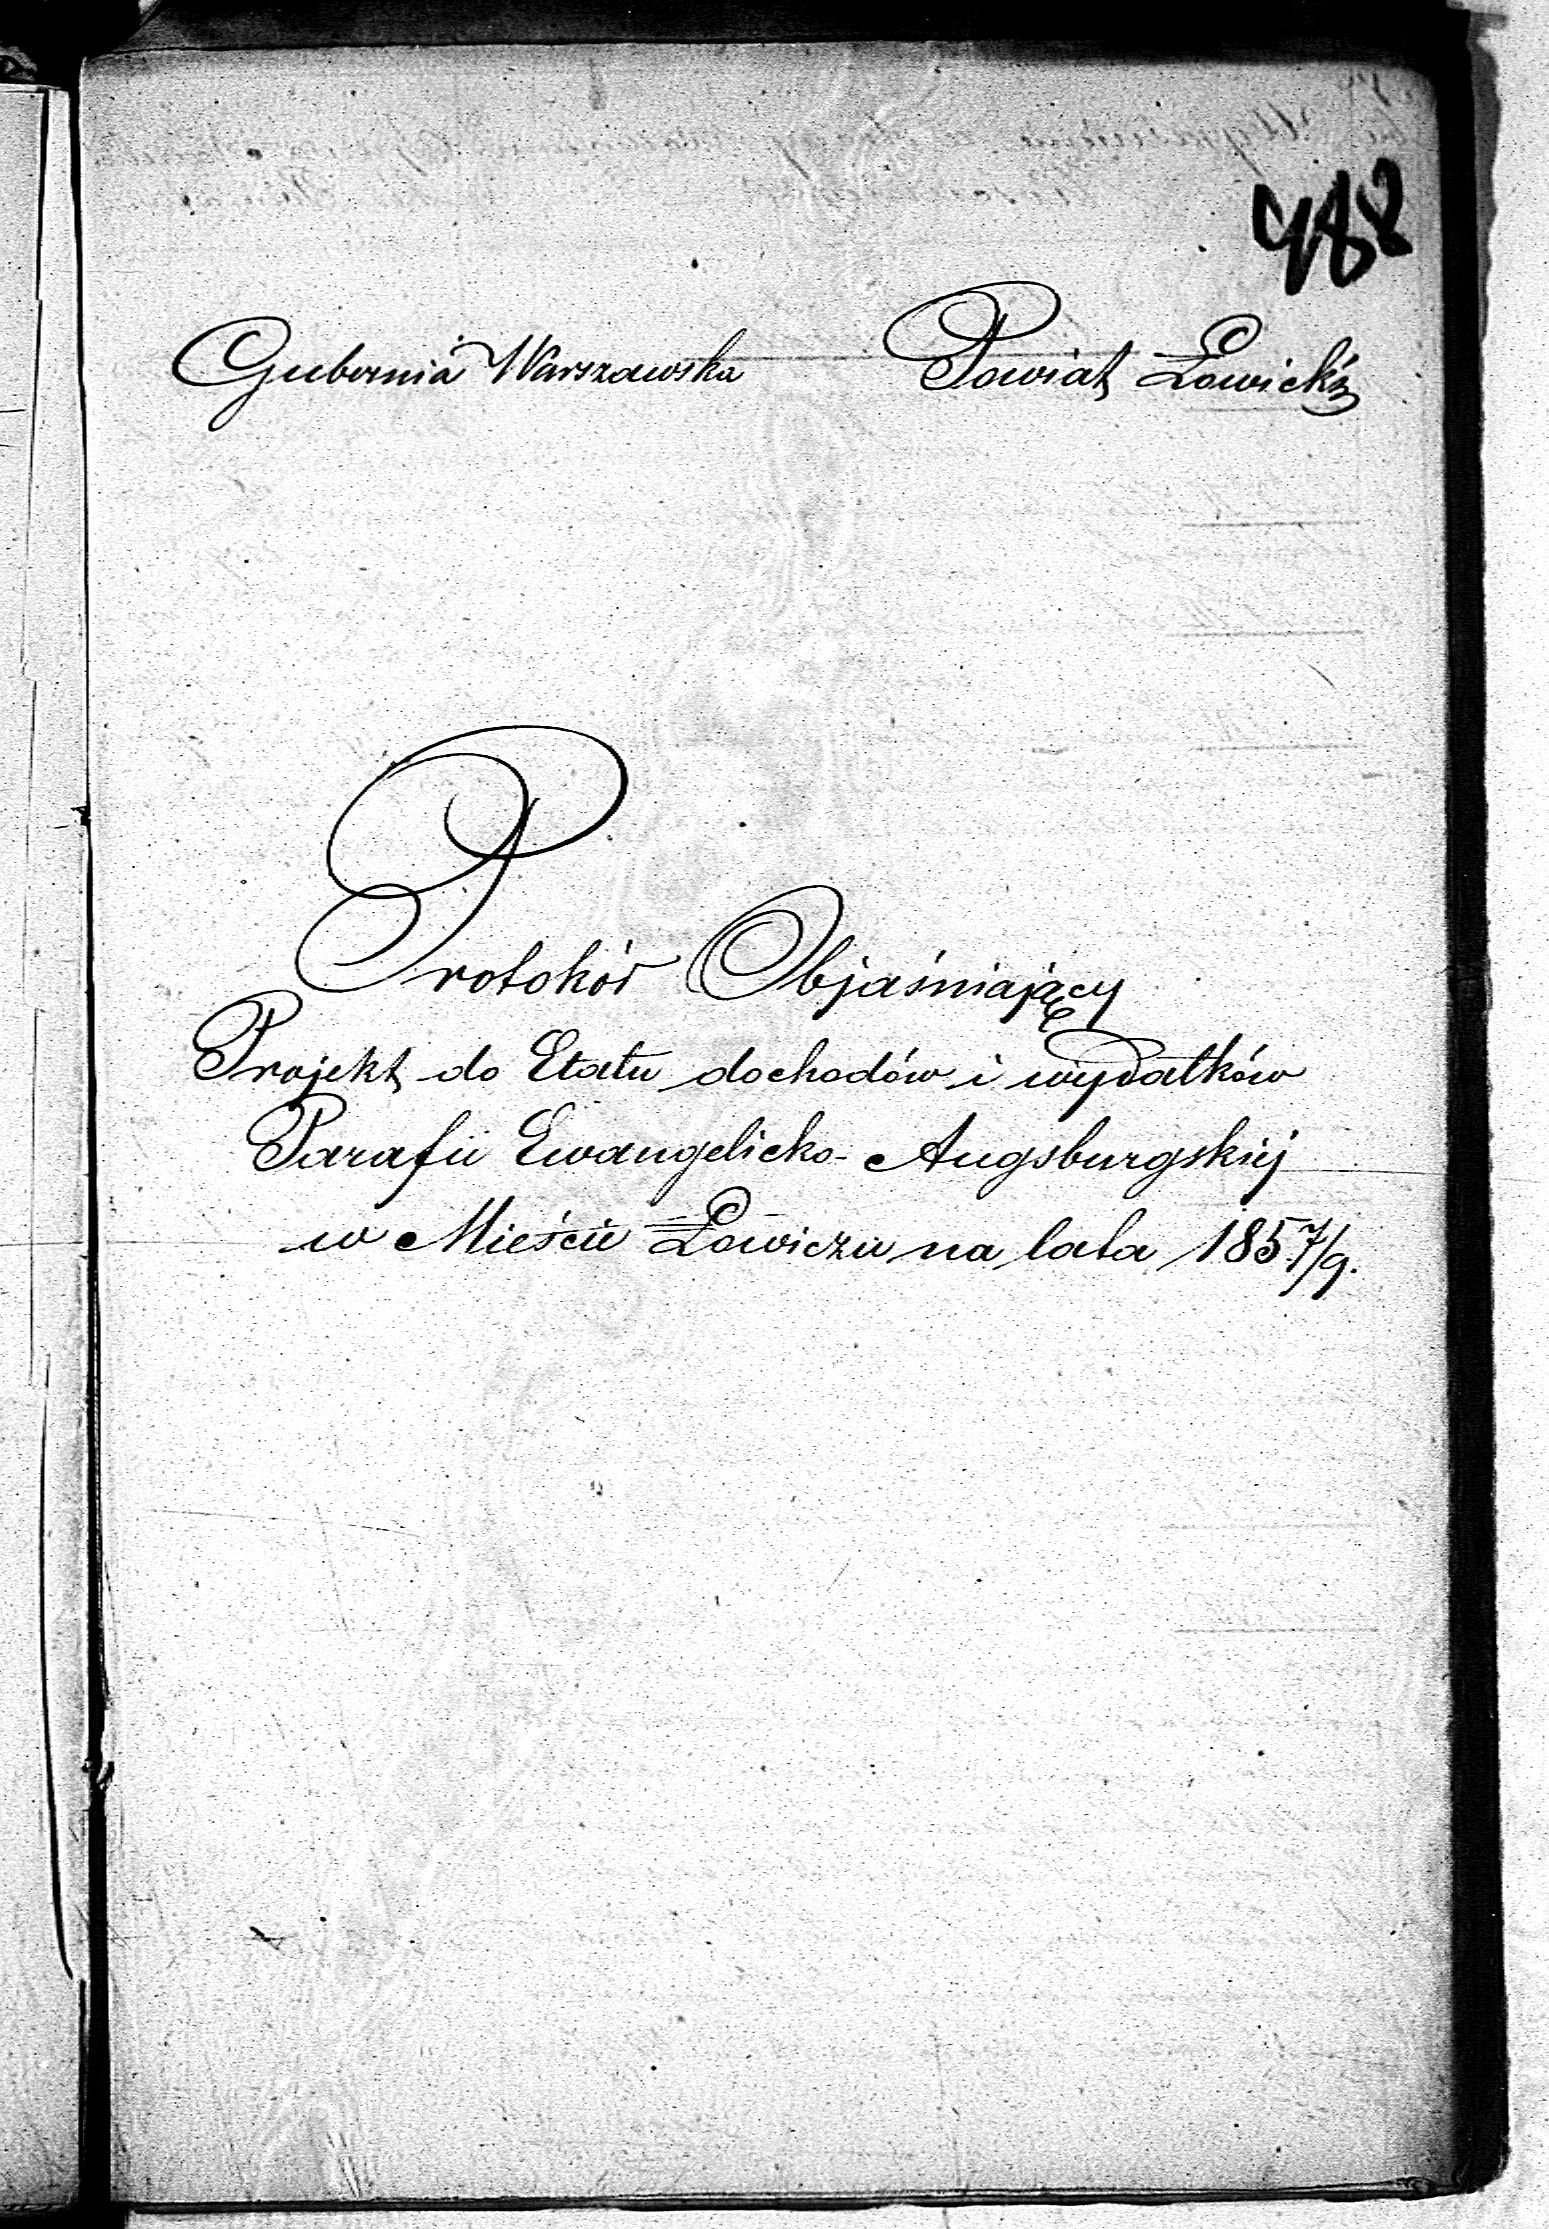 488
Gubernia Warszawska Powiat Łowicki
Protokół Objaśniający
Projekt do Etatu dochodów i wydatków
Parafii Ewangelicko-Augsburgskiej
w Mieście Łowiczu na lata 1857/9.